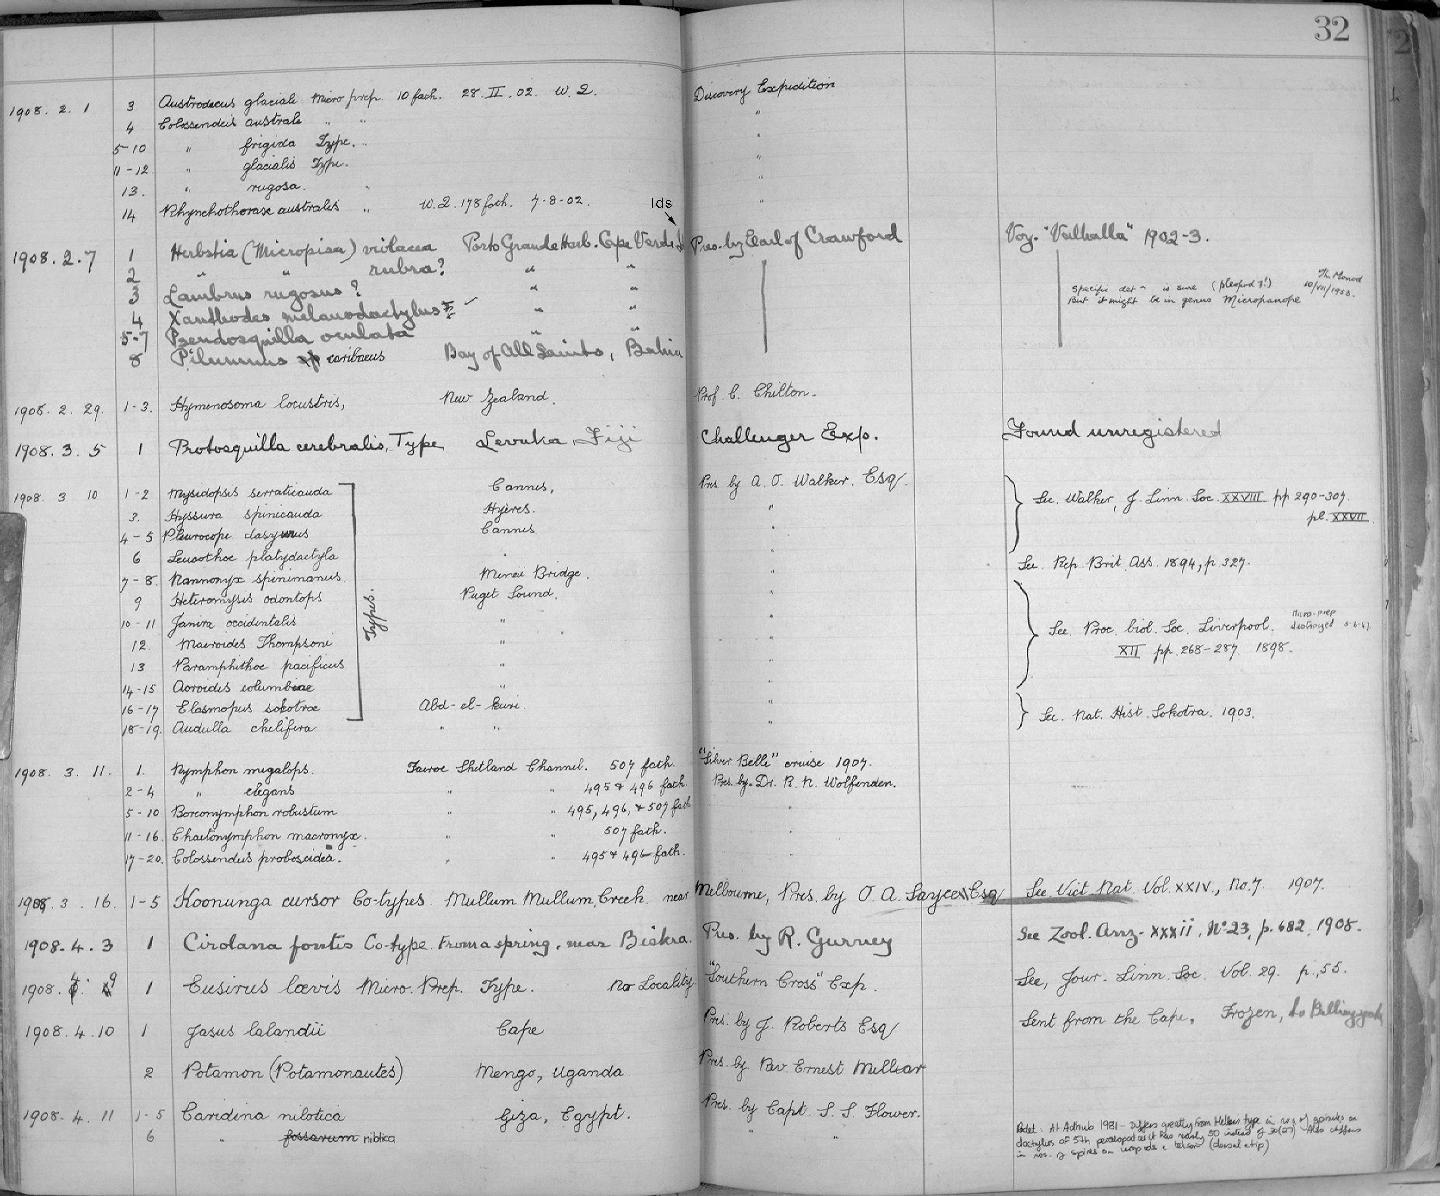 32
1908. 2. 1 3 Austrodecus glaciale Micro prep. 10 fath. 28. II. 02. W. Q. Discovery Expedition
4 Colossendeis australe " " "
5-10 " frigida Type. " "
11-12. " glacialis Type. "
13. " rugosa. " "
14 Rhynchothorax australis " W. Q. 178 fath. 7-8-02. "
Ids
1908. 2. 7 1 Herbstia (Micropisa) violacea Porto Grande Harb. Cape Verde Pres. by Earl of Crawford Voy. "Valhalla" 1902-3.
2 " " rubra? " "
3 Lambrus rugosus ? " " Specific det is sure (pleopod ♂!) Th. Monod
4 Xanthodes melanodactylus " " But it might be in genus Micropanope 10/VII/1953.
5-7 Pseudosquilla oculata " "
8 Pilumnus sp caribaeus Bay of All Saints, Bahia
1908. 2. 29. 1-3. Hymenosoma lacustris, New Zealand. Prof C. Chilton.
1908. 3. 5 1 Protosquilla cerebralis, Type Levuka Fiji Challenger Exp. Found unregistered
1908. 3 10 1-2 Mysidopsis serraticauda Cannes, Pres by A. O. Walker. Esq. See Walker, J. Linn. Soc. XXVIII pp 290-307.
3. Hyssura spinicauda Hyères. " pl. XXVII.
4-5 Pleurocope dasyurus Cannes "
6 Leucothoe platydactyla " "
7-8. Nannonyx spinimanus Menai Bridge. " See Rep. Brit. Ass. 1894, p. 327.
9 Heteromysis odontops Puget Sound. "
Types.
10-11 Janira occidentalis " " See Proc. biol. Soc. Liverpool. Micro-prep
12. Maeroides Thompsoni " " XII pp. 268-287. 1898. destroyed
13 Paramphithoe pacificus " "
14-15 Aoroides columbiae " "
16-17 Elasmopus sokotrae Abd-el-kuri. " See Nat. Hist. Sokotra. 1903.
18-19. Audulla chelifera " " "
1908. 3. 11. 1. Nymphon megalops. Faeroe Shetland Channel. 507 fath. "Silver Belle" cruise 1907.
2-4 " elegans " " 495 & 496 fath. Pres. by Dr. R. N. Wolfenden.
5-10 Boreonymphon robustum " " 495, 496, & 507 fath "
11-16. Chaetonymphon macronyx. " " 507 fath.
17-20. Colossendeis proboscidea. " " 495 & 496 fath. "
1908. 3. 16. 1-5 Koonunga cursor Co-types Mullum Mullum Creek near Melbourne, Pres. by O. A. Sayce Esq See Vict Nat. Vol. XXIV., No. 7. 1907.
1908. 4. 3 1 Cirolana fontis Co-type. From a spring, near Biskra. Pres. by R. Gurney See Zool. Anz. xxxii, No 23, p. 682, 1908.
1908. 4. 9 1 Eusirus laevis Micro. Prep. Type. no Locality "Southern Cross" Exp. See, Jour. Linn. Soc. Vol. 29. p. 55.
1908. 4. 10 1 Jasus lalandii Cape Pres. by J. Roberts Esq Sent from the Cape, Frozen, to Billingsgate
2 Potamon (Potamonautes) Mengo, Uganda Pres. by Rev. Ernest Millar
1908. 4. 11 1-5 Caridina nilotica Giza, Egypt. Pres. by Capt S. S. Flower.
6 " fossarum nilotica " "
Det: At Adhub 1981 - Differs greatly from Hellers type in no. of spinules on
dactylus of 5th pereiopod as it has nearly 50 instead of 30 (27) - Also differs
in nos. of spines on uropods & telson (dorsal & tip)